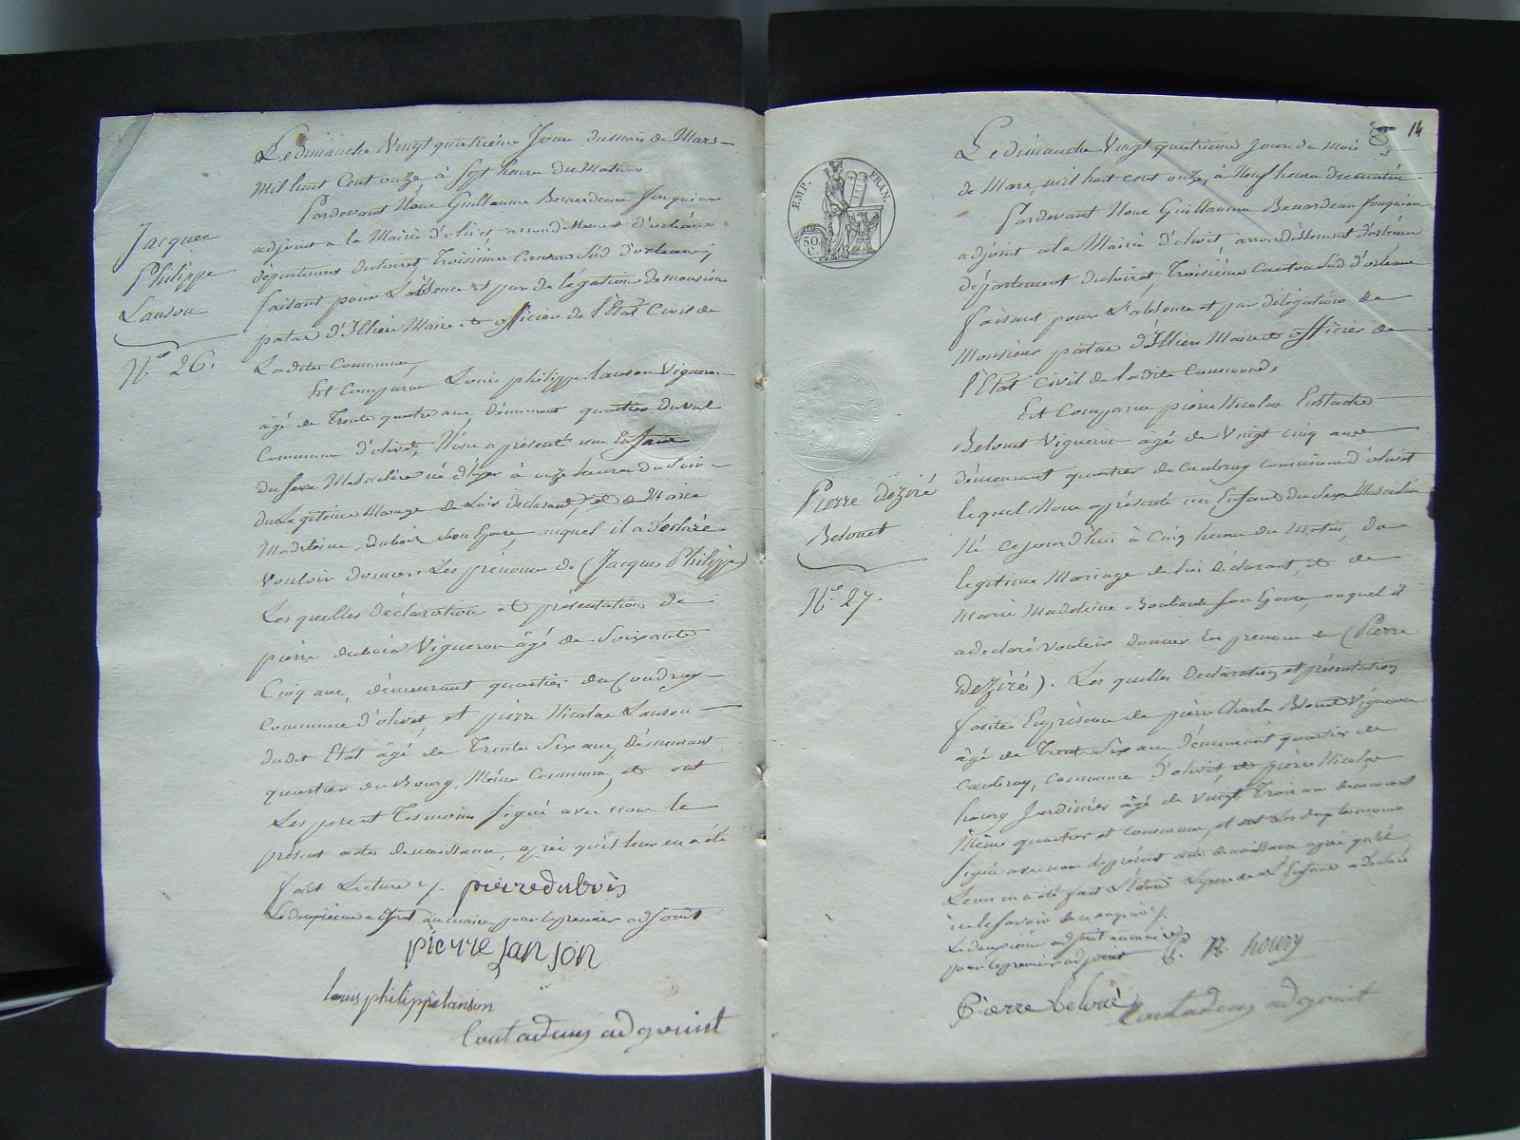 Jacques
Philippe
Lanson
N.o 26.
Le dimanche Vingt quatrieme Jour du mois de Mars
mil huit Cent onze à Sept heures du Matin
Pardevant Nous Guillaume Benardeau Jonquier
adjoint a la Mairie d'olivet arrondissement d'orléans
département du loiret, Troisième Canton Sud d'orleans,
faisant pour L'absence et par délégation de monsieur
patas d'Illiers Maire et officier de l'Etat Civil de
La dite Commune,
Est Comparu Louis philippe lanson Vigneron
âgé de Trente quatre ans Démeurant quartier du val
Commune d'olivet, Nous a présenté un Enfant
du Sexe Masculin né d'hyer à onze heures du Soir
du Légitime Mariage de Lui declarant, et de Marie
Madelaine dubois Son Epouse, auquel il a déclaré
vouloir donner Les prénoms de (Jacques Philippe)
Les quelles déclaration et présentation de
pierre dubois Vigneron âgé de Soixante
Cinq ans, démeurant quartier du Coudray
Commune d'olivet, et pierre Nicolas Lanson
dudit Etat âgé de Trente Six ans, Démeurant
quartier du Bourg, Même Commune, et ont
Les pere et Tesmoins Signé avec nous le
présent acte de naissance, après qu'il leur en a été
fait Lecture ./. pierre dubois
Le deuxième adjoint au maire pour le premier adjoint
pierre Lanson
louis philippe lanson
Coutadeus adjouint
14
EMP. FRAN.
50 C.
Pierre déziré
Belouet
N.o 27.
Le dimanche Vingt quatrieme Jour du Mois
de Mars, mil huit cent onze, à Neuf heures du matin
Pardevant Nous Guillaume Benardeau Jonquier
adjoint a la Mairie d'olivet, arrondissement d'orléans
département du loiret, Troisième Canton Sud d'orleans
faisant pour L'absence et par délégation de
Monsieur patas d'Illiers Maire et officier de
l'Etat Civil de la dite Commune,
Est Comparu pierre Nicolas Eustache
Belouet Vigneron âgé de Vingt cinq ans
démeurant quartier du Caubray commune d'olivet
lequel Nous a présenté un Enfant du Sexe Masculin
Né cejourd'hui à Cinq heures du Matin, du
legitime Mariage de lui déclarant, et de
marie Madeleine Son Epouse, auquel il
a declaré vouloir donner Les prenoms de (Pierre
déZiré). Les quelles Déclaration et présentation
faites En présence de pierre Charles Belouet Vigneron
âgé de Trente Six ans Démeurant quartier du
Caubray, Commune d'olivet et pierre Nicolas
houry Jardinier âgé de Vingt Trois ans demeurant
Même quartier et Commune, et ont Les deux temoins
Signé avec nous le présent acte de naissance après qu'il
Leur en a été fait Lecture Le pere de L'Enfant a déclaré
ne le savoir
Le deuxième adjoint au maire
pour le premier adjoint P. N. houry
Pierre Beloué Coutadeus adjouint